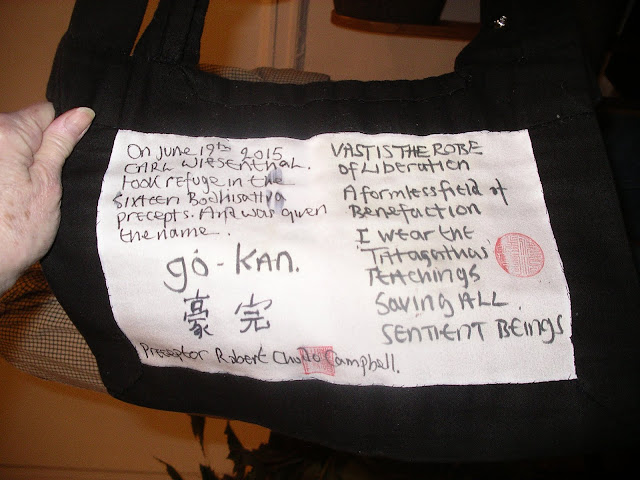 On June 19th 2015
CARL WIESENTHAL.
took refuge in the
Sixteen Bodhisattva
precepts. And was given
the name.
gó-KAN.
豪 完
Preceptor Robert Chodo Campbell.
VAST IS THE ROBE
of Liberation
A formless field of
Benefaction
I wear the
Tatagathas
TEACHINGS
Saving ALL.
SENTIENT BEINGS